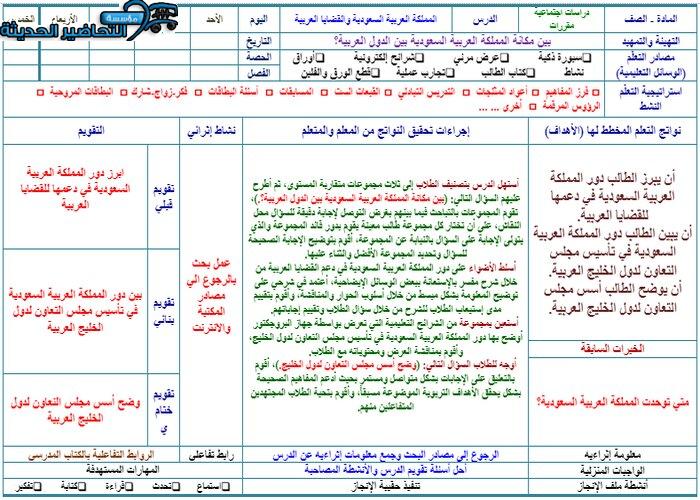 مؤسسة
التحاضير الحديثة
المادة - الصف
دراسات اجتماعية
مقررات
الدرس
المملكة العربية السعودية والقضايا العربية
اليوم
الأحد
الأربعاء
التهيئة والتمهيد
بين مكانة المملكة العربية السعودية بين الدول العربية؟
التاريخ
مصادر التعلم
(الوسائل التعليمية)
سبورة ذكية
عرض مرئي
شرائح إلكترونية
أوراق
الحصة
نشاط
كتاب الطالب
تجارب عملية
قطع الورق والفلين
الفصل
استراتيجية التعلم
النشط
فرز المفاهيم
أعواد المثلجات
التدريس التبادلي
القبعات الست
المسابقات
أسئلة البطاقات
فكر-زواج-شارك
البطاقات المروحية
الرؤوس المرقمة
أخرى ... ...
نواتج التعلم المخطط لها (الأهداف)
إجراءات تحقيق النواتج من المعلم والمتعلم
نشاط إثرائي
التقويم
أن يبرز الطالب دور المملكة
العربية السعودية في دعمها
للقضايا العربية.
أن يبين الطالب دور المملكة العربية
السعودية في تأسيس مجلس
التعاون لدول الخليج العربية.
أن يوضح الطالب أسس مجلس
التعاون لدول الخليج العربية.
الخبرات السابقة
متي توحدت المملكة العربية السعودية؟
أستهل الدرس بتصنيف الطلاب إلى ثلاث مجموعات متقاربة المستوى، ثم أطرح
عليهم السؤال التالي: (بين مكانة المملكة العربية السعودية بين الدول العربية؟.)،
تقوم المجموعات بالتباحث فيما بينهم بغرض التوصل لإجابة دقيقة للسؤال محل
النقاش، على أن تختار كل مجموعة طالب معينة يقوم بدور قائد المجموعة والذي
يتولى الإجابة على السؤال بالنيابة عن المجموعة، أقوم بتوضيح الإجابة الصحيحة
للسؤال وتحديد المجموعة الأفضل والثناء عليها.
أسلط الأضواء على دور المملكة العربية السعودية في دعم القضايا العربية من
خلال شرح مفسر بالإستعانة ببعض الوسائل الإيضاحية، أعتمد في شرحي على
توضيح المعلومة بشكل مبسط من خلال أسلوب الحوار والمناقشة، وأقوم بتقييم
مدى إستيعاب الطلاب للشرح من خلال سؤال الطلاب وتقييم إجاباتهم.
أستعين بمجموعة من الشرائح التعليمية التي تعرض بواسطة جهاز البروجكتور
أوضح بها دور المملكة العربية السعودية في تأسيس مجلس التعاون لدول الخليج،
وأقوم بمناقشة العرض ومحتوياته مع الطلاب.
أوجه للطلاب السؤال التالي: (وضح أسس مجلس التعاون لدول الخليج.)، أقوم
بالتعليق على الإجابات بشكل متواصل ومستمر بحيث أدعم المفاهيم الصحيحة
بشكل يحقق الأهداف التربوية الموضوعة مسبقاً، وأقوم بتحية الطلاب المجتهدين
المتفاعلين منهم.
عمل بحث
بالرجوع الي
مصادر
المكتبة
والانترنت
تقويم
قبلي
ابرز دور المملكة العربية
السعودية في دعمها للقضايا
العربية
تقويم
بنائي
بين دور المملكة العربية السعودية
في تأسيس مجلس التعاون لدول
الخليج العربية
تقويم
ختام
ي
وضح أسس مجلس التعاون لدول
الخليج العربية
معلومة إثرائيه
الرجوع إلى مصادر البحث وجمع معلومات إثراءيه عن الدرس
رابط تفاعلى
الروابط التفاعلية بالكتاب المدرسي
الواجبات المنزلية
أحل أسئلة تقويم الدرس والأنشطة المصاحبة
المهارات المستهدفة
أنشطة ملف الإنجاز
تنفيذ حقيبة الإنجاز
استماع
تحدث
قراءة
كتابة
تفكير